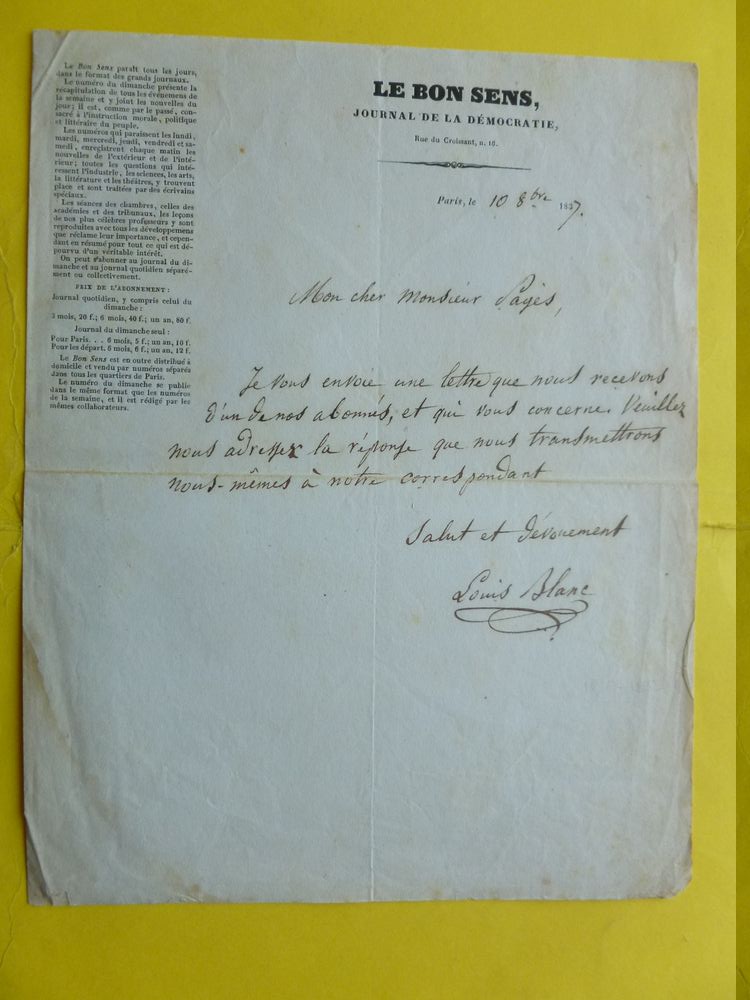 Le Bon Sens paraît tous les jours,
dans le format des grands journaux.
Le numéro du dimanche présente la
récapitulation de tous les événemens de
la semaine et y joint les nouvelles du
jour; il est, comme par le passé, con-
sacré à l'instruction morale, politique
et littéraire du peuple.
Les numéros qui paraissent les lundi,
mardi, mercredi, jeudi, vendredi et sa-
medi, enregistrent chaque matin les
nouvelles de l'extérieur et de l'inté-
rieur; toutes les questions qui inté-
ressent l'industrie, les sciences, les arts,
la littérature et les théâtres, y trouvent
place et sont traitées par des écrivains
spéciaux.
Les séances des chambres, celles des
académies et des tribunaux, les leçons
de nos plus célèbres professeurs y sont
reproduites avec tous les développemens
que réclame leur importance, et cepen-
dant en résumé pour tout ce qui est dé-
pourvu d'un véritable intérêt.
On peut s'abonner au journal du di-
manche et au journal quotidien séparé-
ment ou collectivement.
PRIX DE L'ABONNEMENT :
Journal quotidien, y compris celui du
dimanche :
3 mois, 20 f.; 6 mois, 40 f.; un an, 80 f.
Journal du dimanche seul :
Pour Paris. . . 6 mois, 5 f.; un an, 10 f.
Pour les départ. 6 mois, 6 f.; un an, 12 f.
Le Bon Sens est en outre distribué à
domicile et vendu par numéros séparés
dans tous les quartiers de Paris.
Le numéro du dimanche se publie
dans le même format que les numéros
de la semaine, et il est rédigé par les
mêmes collaborateurs.
LE BON SENS,
JOURNAL DE LA DÉMOCRATIE,
Rue du Croissant, n. 16.
Paris, le 10 8bre 1837.
Mon cher Monsieur Pagès,
Je vous envoie une lettre que nous recevons
d'un de nos abonnés, et qui vous concerne. Veuillez
nous adresser la réponse que nous transmettrons
nous-mêmes à notre correspondant
Salut et dévouement
Louis Blanc